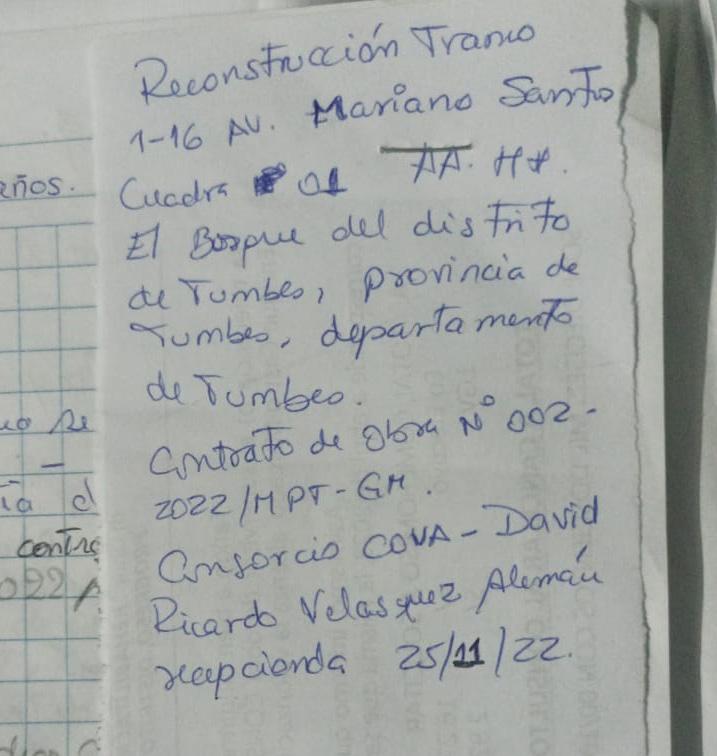 Reconstrucción Tramo
1-16 AV. Mariano Santo
Cuadra 01 AA. HH.
El Bosque del distrito
de Tumbes, provincia de
Tumbes, departamento
de Tumbes.
Contrato de Obra N° 002-
2022/MPT-GM.
Consorcio COVA - David
Ricardo Velasquez Alemán
recepcionda 25/11/22.
eños.